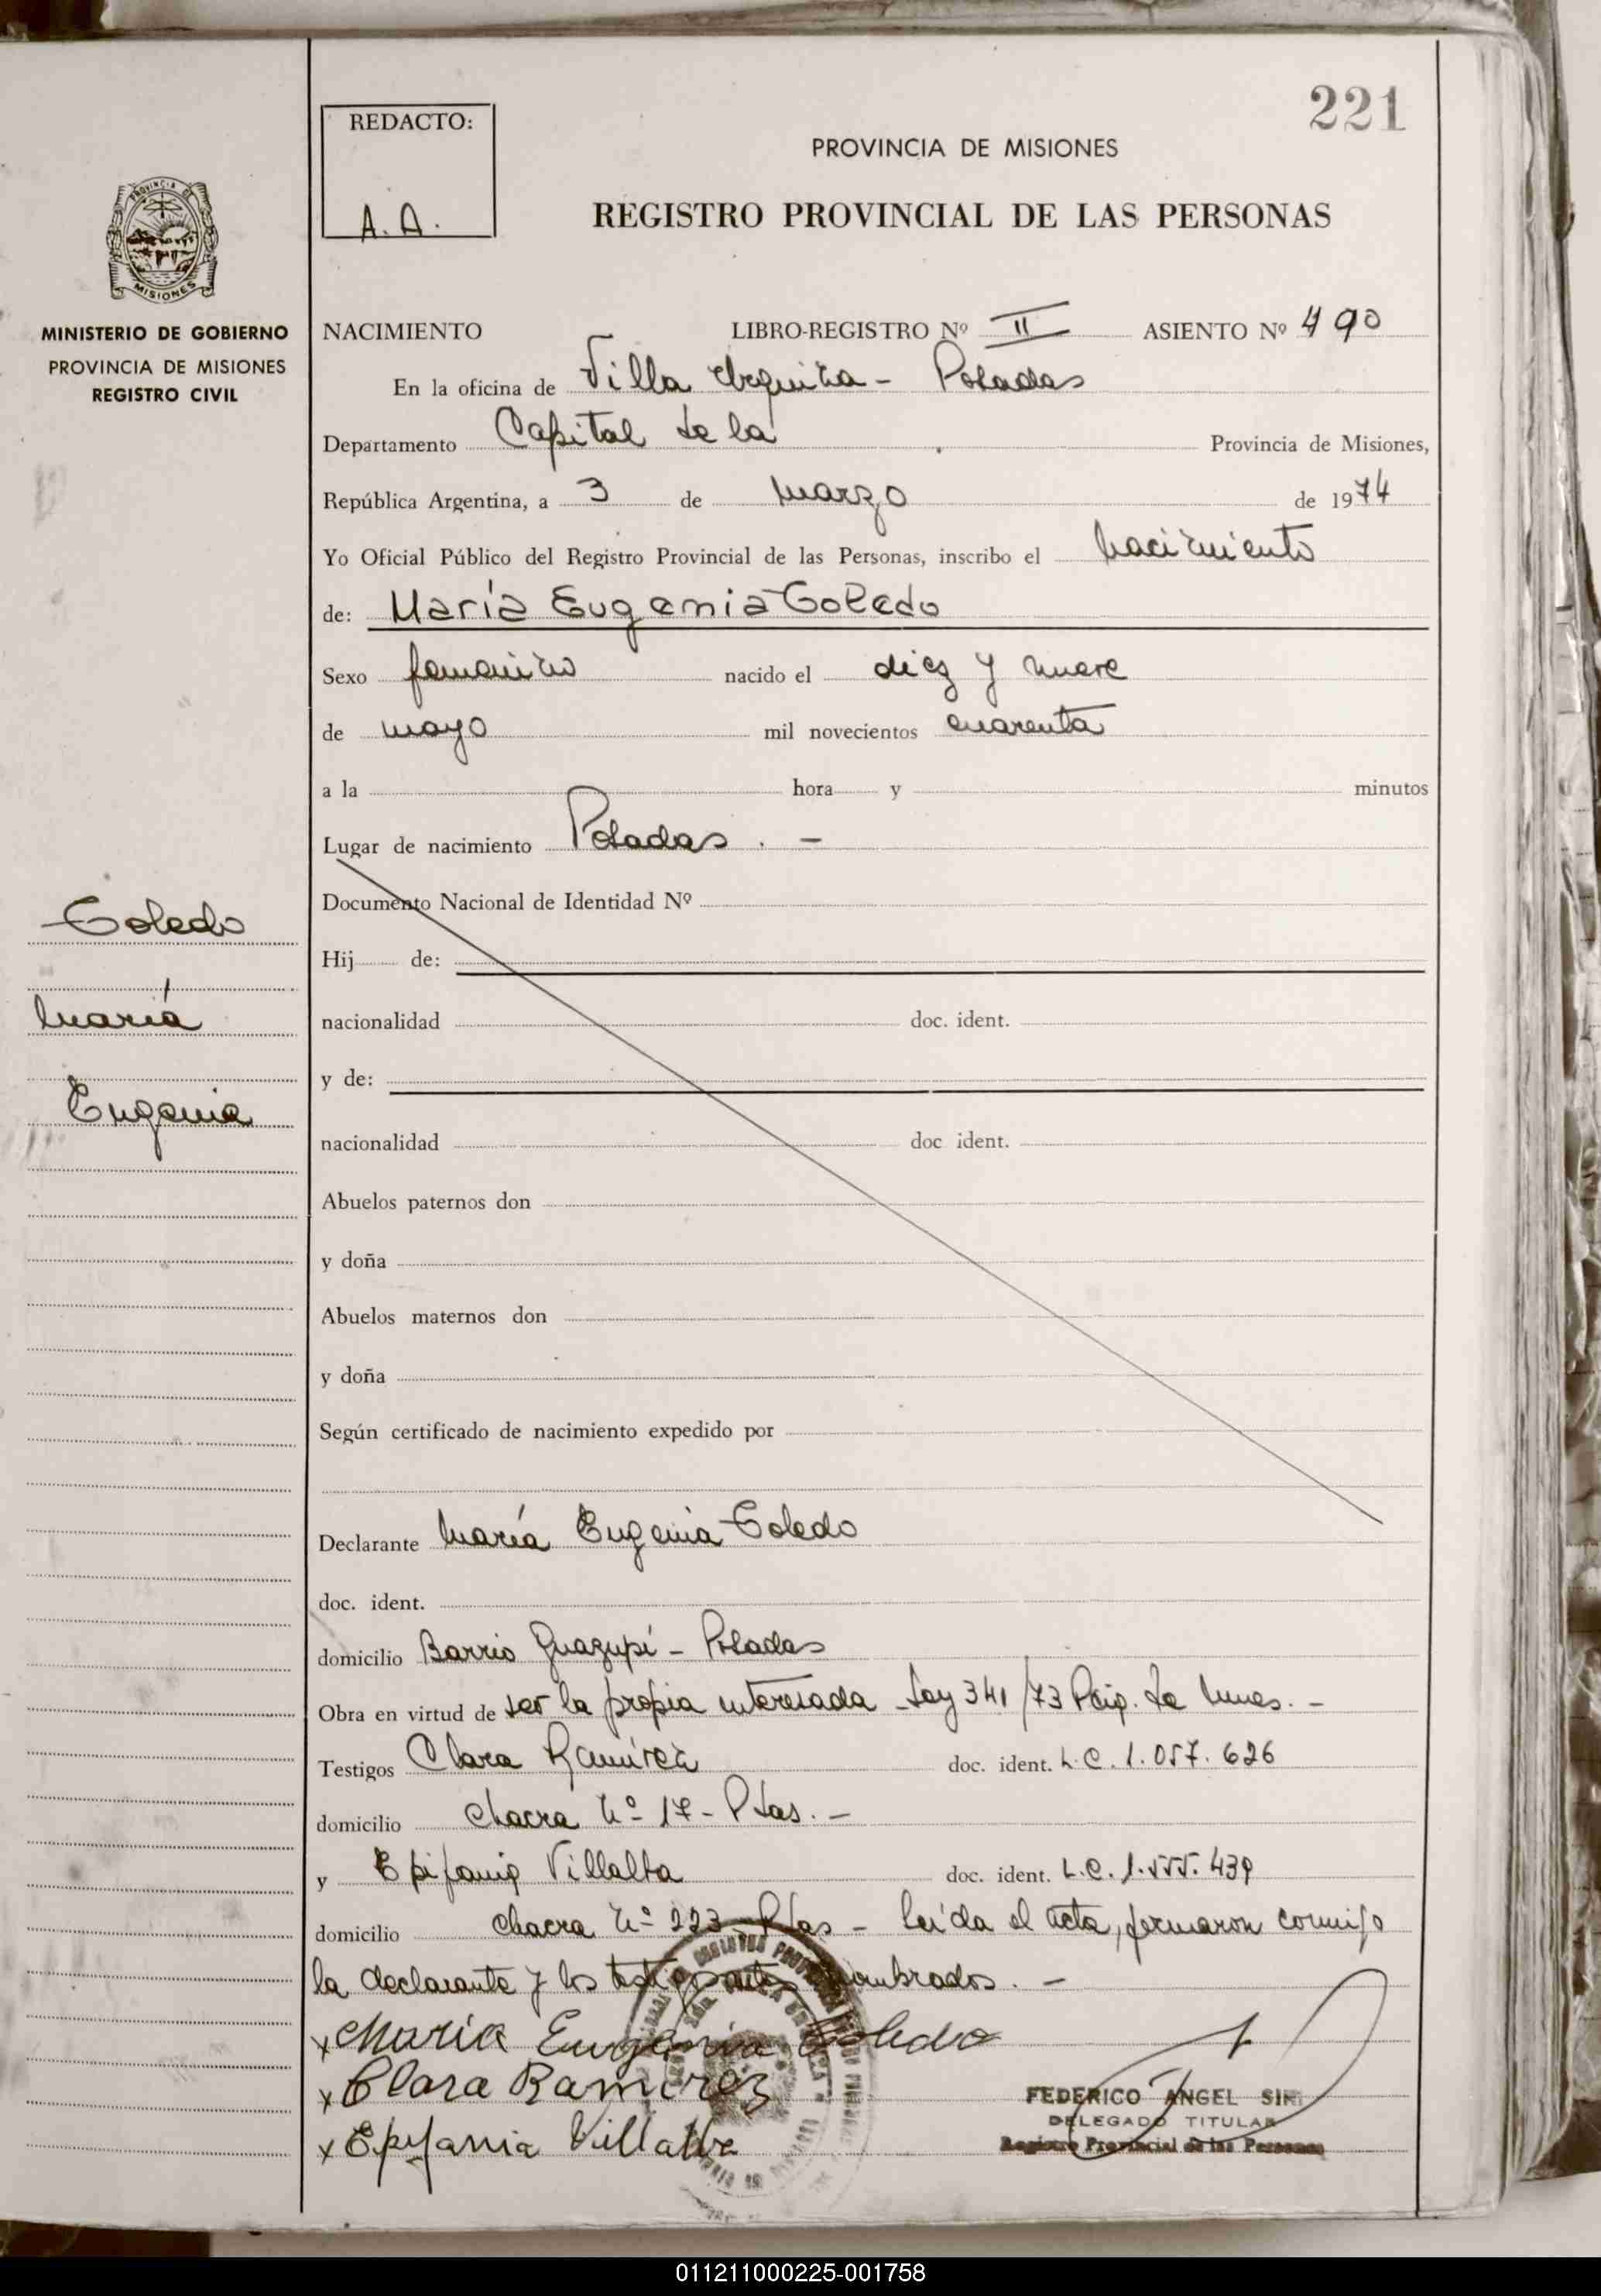 221
REDACTO:
A. A.
PROVINCIA DE MISIONES
REGISTRO PROVINCIAL DE LAS PERSONAS
PROVINCIA DE
MISIONES
MINISTERIO DE GOBIERNO
PROVINCIA DE MISIONES
REGISTRO CIVIL
NACIMIENTO LIBRO-REGISTRO Nº II ASIENTO Nº 490
En la oficina de Villa Urquiza - Posadas
Departamento Capital de la Provincia de Misiones,
República Argentina, a 3 de marzo de 1974
Yo Oficial Público del Registro Provincial de las Personas, inscribo el nacimiento
de: María Eugenia Toledo
Sexo femenino nacido el diez y nueve
de mayo mil novecientos cuarenta
a la hora y minutos
Lugar de nacimiento Posadas . -
Documento Nacional de Identidad Nº
Hij de:
nacionalidad doc. ident.
y de:
nacionalidad doc ident.
Abuelos paternos don
y doña
Abuelos maternos don
y doña
Según certificado de nacimiento expedido por
Toledo
María
Eugenia
Declarante María Eugenia Toledo
doc. ident.
domicilio Barrio Guazupí - Posadas
Obra en virtud de ser la propia interesada Ley 341/73 de
Testigos Clara Ramírez doc. ident. L.C. 1.057.626
domicilio chacra Nº 17 - Pdas. -
y Epifania Villalba doc. ident. L.C. 1.555.439
domicilio chacra Nº 223 - Pdas - leída el acta, firmaron conmigo
la declarante y los testigos antes nombrados. -
x María Eugenia Toledo
x Clara Ramirez
x Epifania Villalba
FEDERICO ANGEL
DELEGADO TITULAR
Registro Provincial de las Personas
011211000225-001758